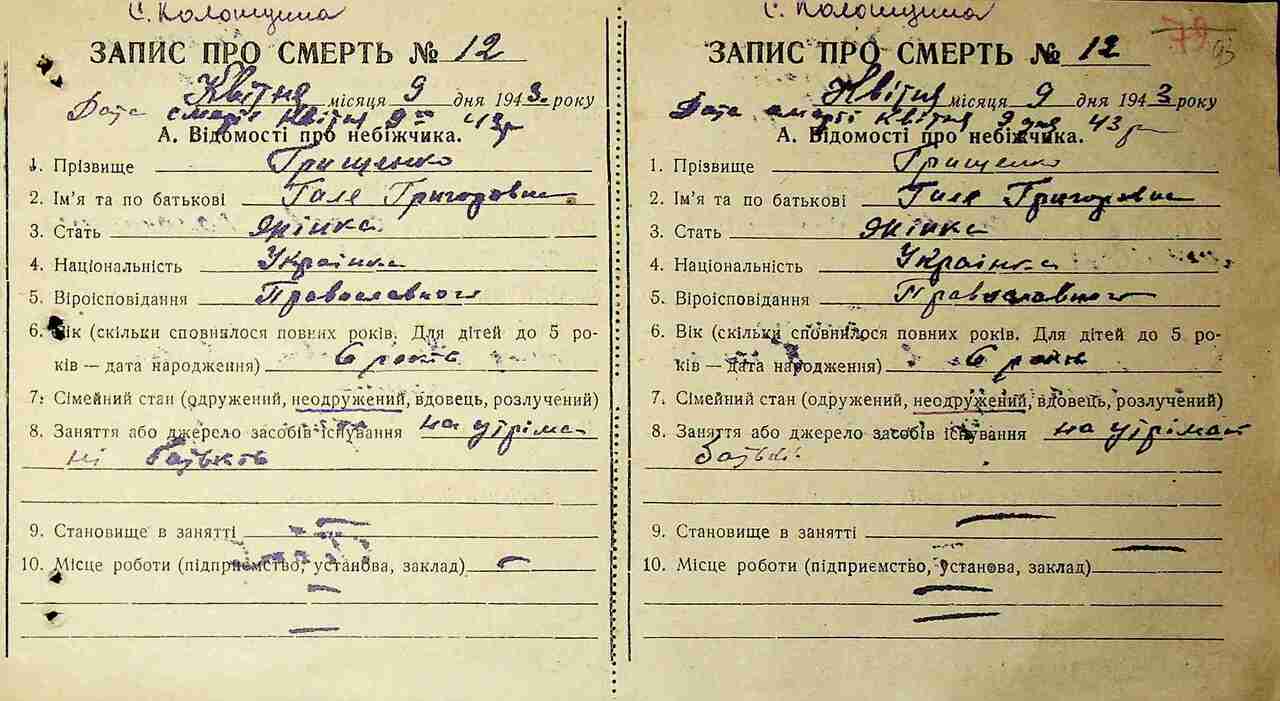 с. Колонщина
ЗАПИС ПРО СМЕРТЬ № 12
Квітня місяця 9 дня 1943 року
Дата смерті Квітня 9 43 р
А. Відомості про небіжчика.
1. Прізвище Грищенко
2. Ім'я та по батькові Галя Григоровна
3. Стать Жінка
4. Національність Українка
5. Віроісповідання Православного
6. Вік (скільки сповнилося повних років. Для дітей до 5 ро-
ків — дата народження) 6 років
7. Сімейний стан (одружений, неодружений, вдовець, розлучений)
8. Заняття або джерело засобів існування на утріман
ні батьків
9. Становище в занятті —
10. Місце роботи (підприємство, установа, заклад) —
—
—
с. Колонщина
79
93
ЗАПИС ПРО СМЕРТЬ № 12
Квітня місяця 9 дня 1943 року
Дата смерті Квітня 9 дня 43 р
А. Відомості про небіжчика.
1. Прізвище Грищенко
2. Ім'я та по батькові Галя Григоровна
3. Стать Жінка
4. Національність Українка
5. Віроісповідання Православного
6. Вік (скільки сповнилося повних років. Для дітей до 5 ро-
ків — дата народження) 6 років
7. Сімейний стан (одружений, неодружений, вдовець, розлучений)
8. Заняття або джерело засобів існування на утріман
батьк
9. Становище в занятті —
10. Місце роботи (підприємство, установа, заклад) —
—
—